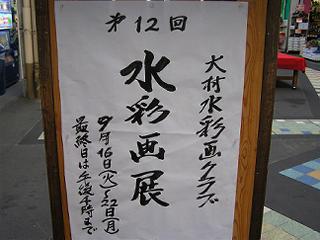 第12回
大村水彩画クラブ
水彩画展
9月16日(火)~22日(月)
最終日は午後4時まで